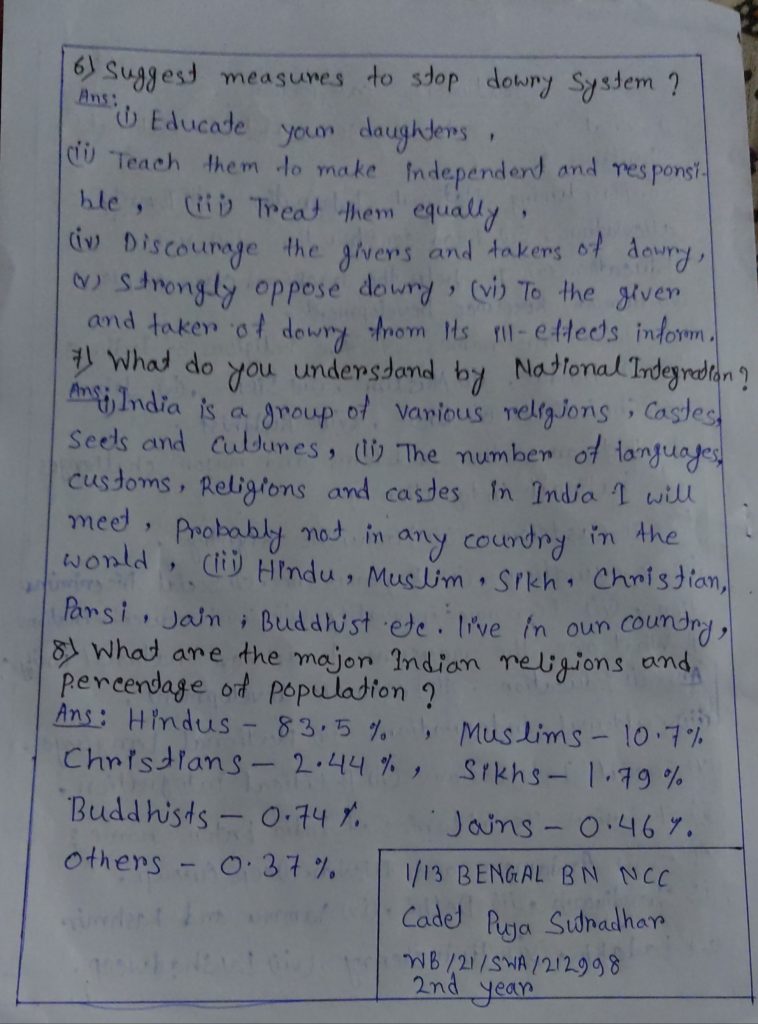 6) Suggest measures to stop dowry System ?
Ans: (i) Educate your daughters ,
(ii) Teach them to make independent and responsi-
ble , (iii) Treat them equally ,
(iv) Discourage the givers and takers of dowry,
(v) Strongly oppose dowry , (vi) To the giver
and taker of dowry from Its ill-effects inform.
7) What do you understand by National Integration ?
Ans: (i) India is a group of various religions , Castes,
Sects and Cultures, (ii) The number of languages,
customs, Religions and castes in India I will
meet , Probably not in any country in the
world , (iii) Hindu, Muslim , Sikh , Christian,
Parsi , Jain , Buddhist etc. live in our country,
8) What are the major Indian religions and
percentage of population ?
Ans: Hindus - 83.5 % , Muslims - 10.7%
Christians - 2.44 % , Sikhs - 1.79 %
Buddhists - 0.74 %. Jains - 0.46 %.
Others - 0.37 %.
1/13 BENGAL BN NCC
Cadet Puja Sutradhar
WB/21/SWA/212998
2nd year